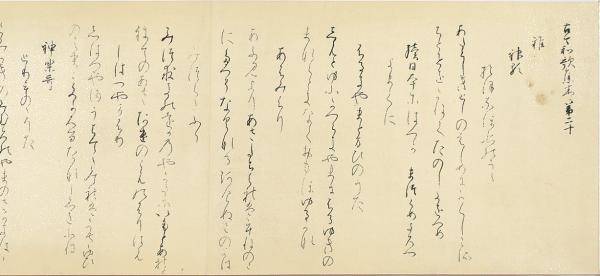 古今和歌集巻第二十
雑
おほなほひのうた
あたらしきとしのはしめにかくしこそ
ちとせをかねてたのしきをつめ
續日本紀にはつかへまつらめ
よろつよまてに
ふるきやまとまひのうた
しもとゆふかつらきやまにふるゆきの
まなくときなくおもほゆるかな
あふみふり
あふみよりあさたちくれはうねのの
にたつそなくなるあけぬこのよは
みつくきふり
みつくきのをかのやかたにいもとあれと
ねてのあさけのしものふりはも
しはつやまふり
しはつやまうちいててみれはかさゆひ
のしまこきかくるたななしをふね
神楽哥
とりもののうた